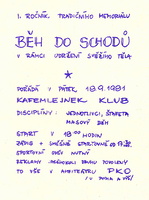 1. ROČNÍK TRADIČNÍHO MEMORIÁLU
BĚH DO SCHODŮ
V RÁMCI UDRŽENÍ SVĚŽÍHO TĚLA
*
POŘÁDÁ V PÁTEK 13.9.1991
KAFEMLEJNEK KLUB
DISCIPLÍNY: JEDNOTLIVCI, ŠTAFETA
MASOVÝ BĚH
START V 18 00 HODIN
ZÁPIS
SPORTOVNÍ ODĚV NUTNÝ
REKLAMY BUDOU POVOLENY
TO VŠE V AMFITEÁTRU PKO